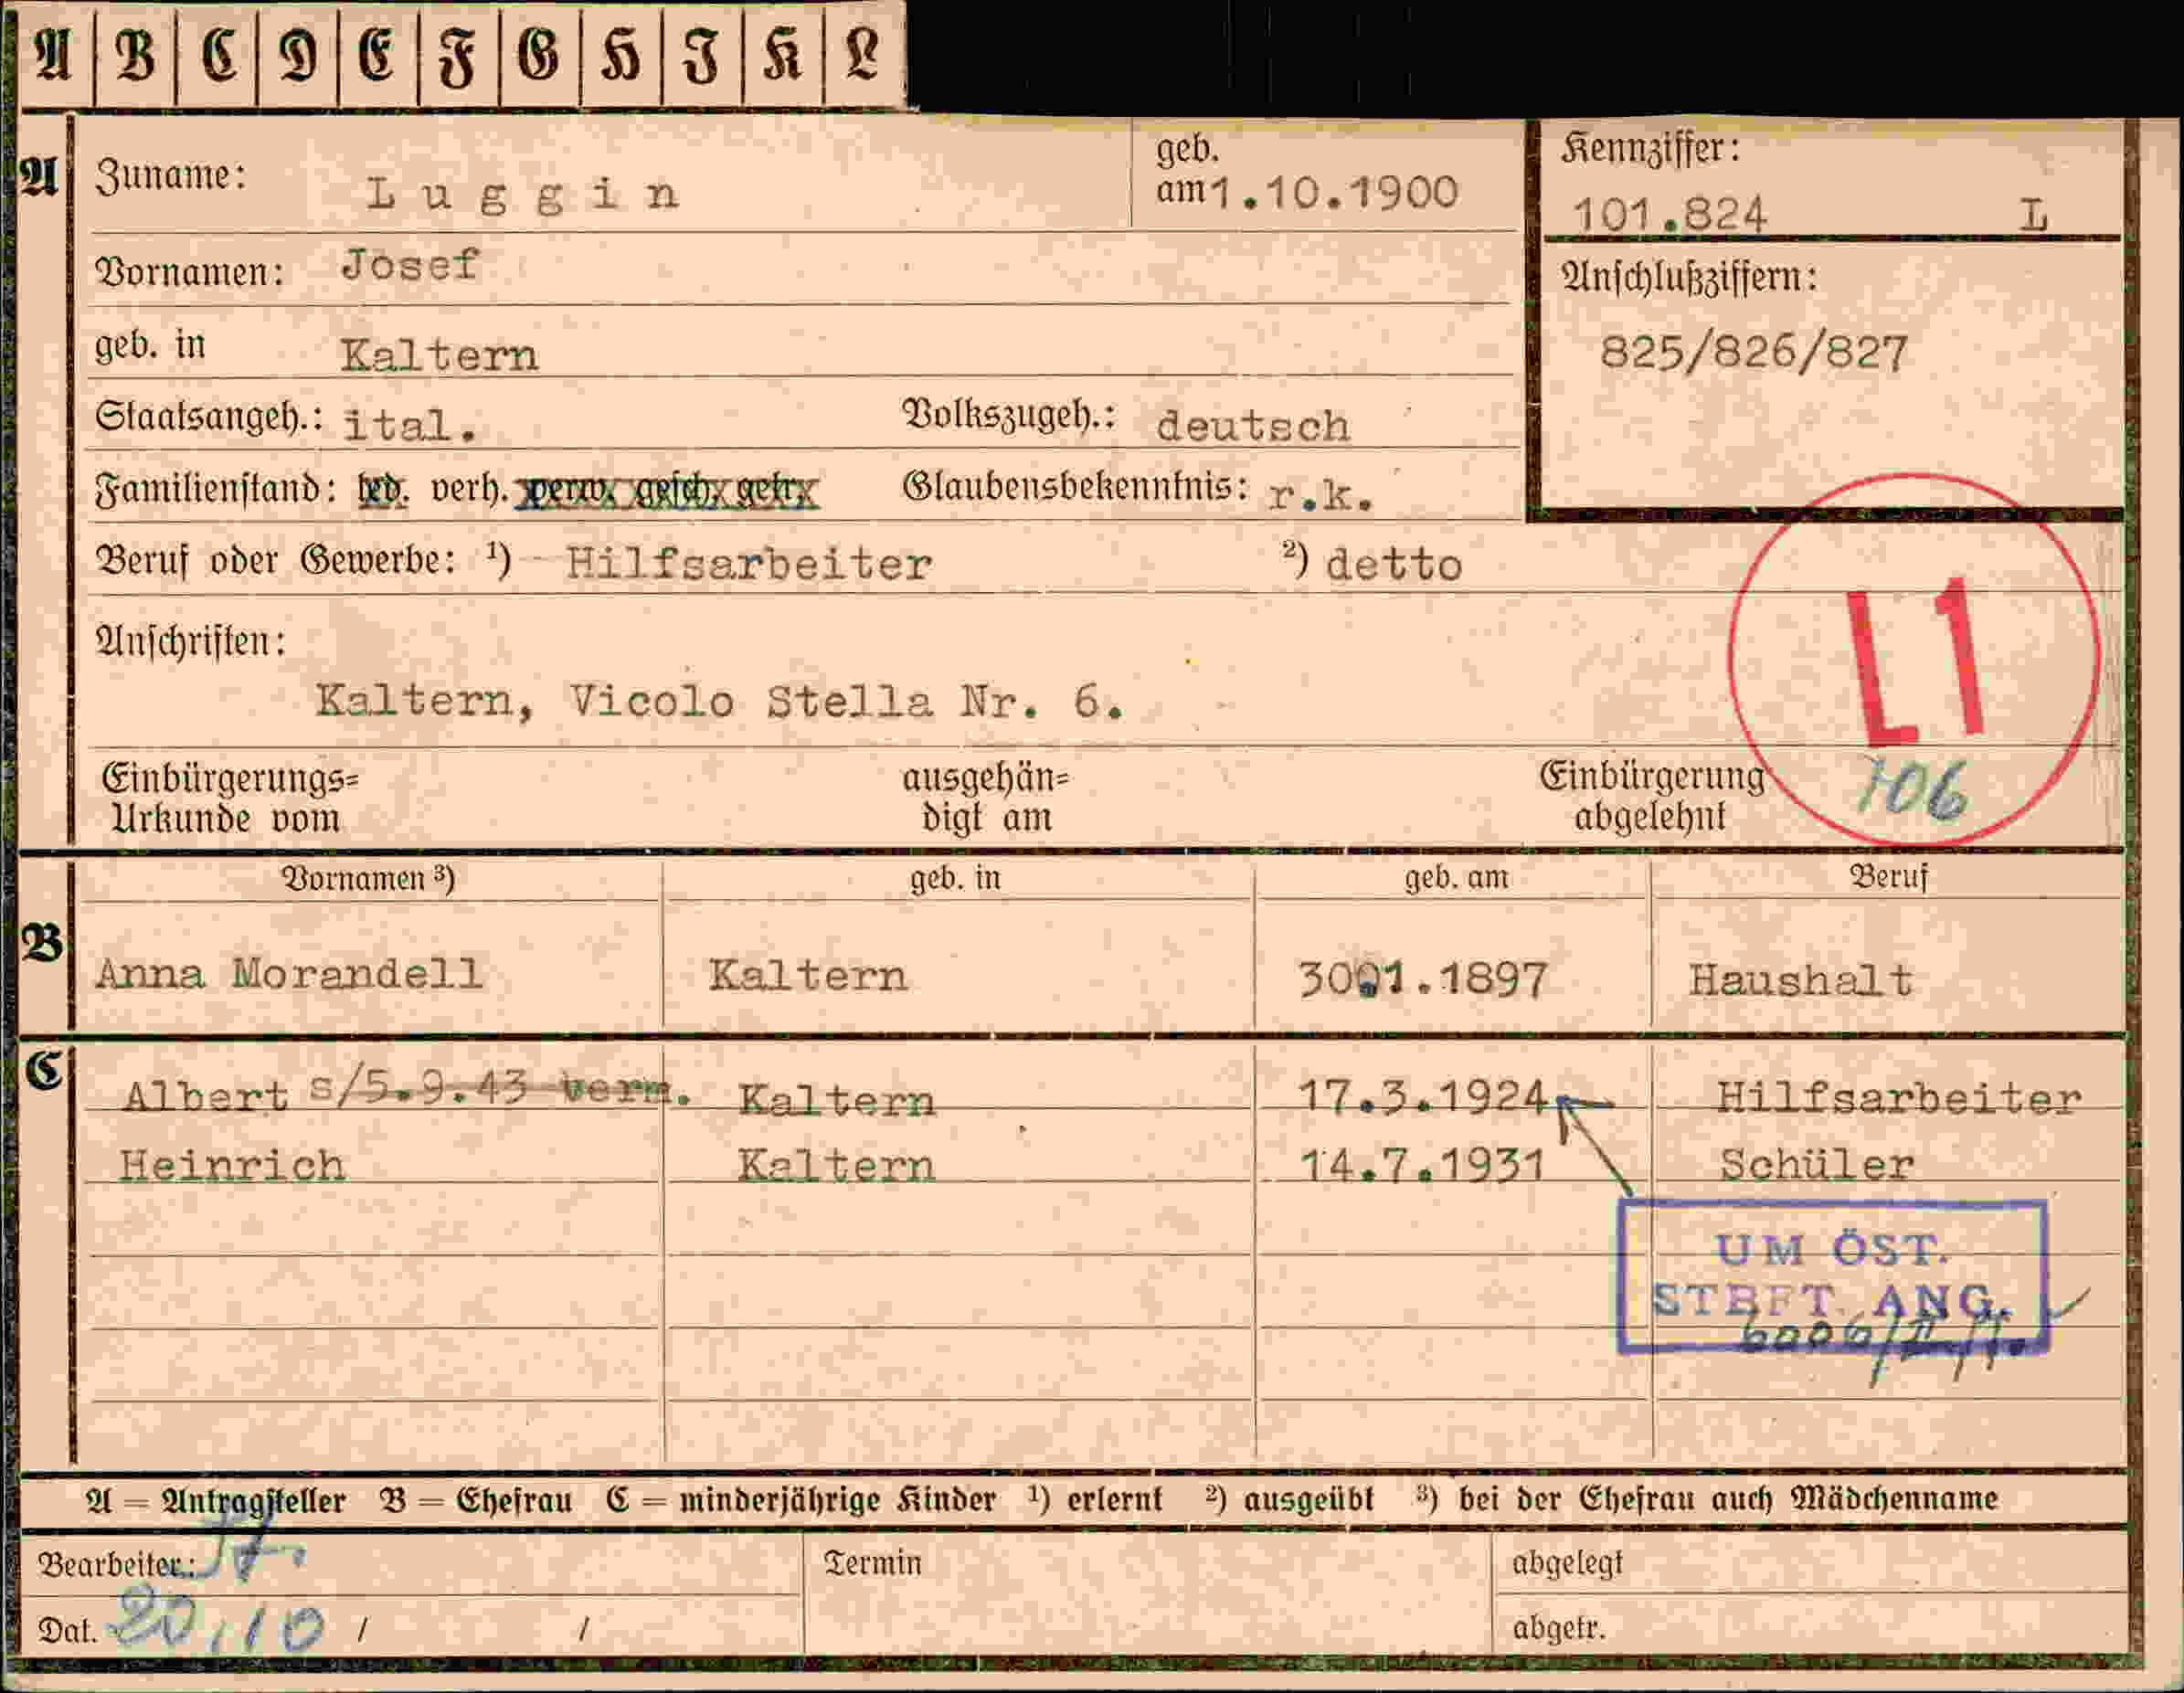 A B C D E F G H I K L
A Zuname: Luggin geb. am 1.10.1900 Kennziffer: 101.824 L
Vornamen: Josef Anschlußziffern:
geb. in Kaltern 825/826/827
Staatsangeh.: ital. Volkszugeh.: deutsch
Familienstand: led. verh. verw. gesch. getr. Glaubensbekenntnis: r.k.
Beruf oder Gewerbe: ¹) Hilfsarbeiter ²) detto
L1
Anschriften:
Kaltern, Vicolo Stella Nr. 6.
106
Einbürgerungs= ausgehän= Einbürgerung
Urkunde vom digt am abgelehnt
Vornamen ³) geb. in geb. am Beruf
B Anna Morandell Kaltern 30.1.1897 Haushalt
C Albert s/5.9.43 verm. Kaltern 17.3.1924 Hilfsarbeiter
Heinrich Kaltern 14.7.1931 Schüler
UM ÖST.
STBFT. ANG.
A = Antragsteller B = Ehefrau C = minderjährige Kinder ¹) erlernt ²) ausgeübt ³) bei der Ehefrau auch Mädchenname
Bearbeiter: Termin abgelegt
Dat. 20/10 / / abgetr.